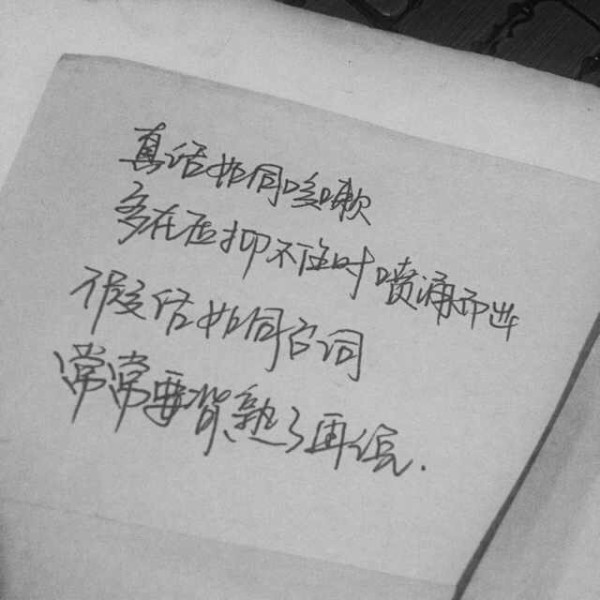 真话如同咳嗽
多在压抑不住时喷涌而出
假话如同台词
常常要背熟了再说.